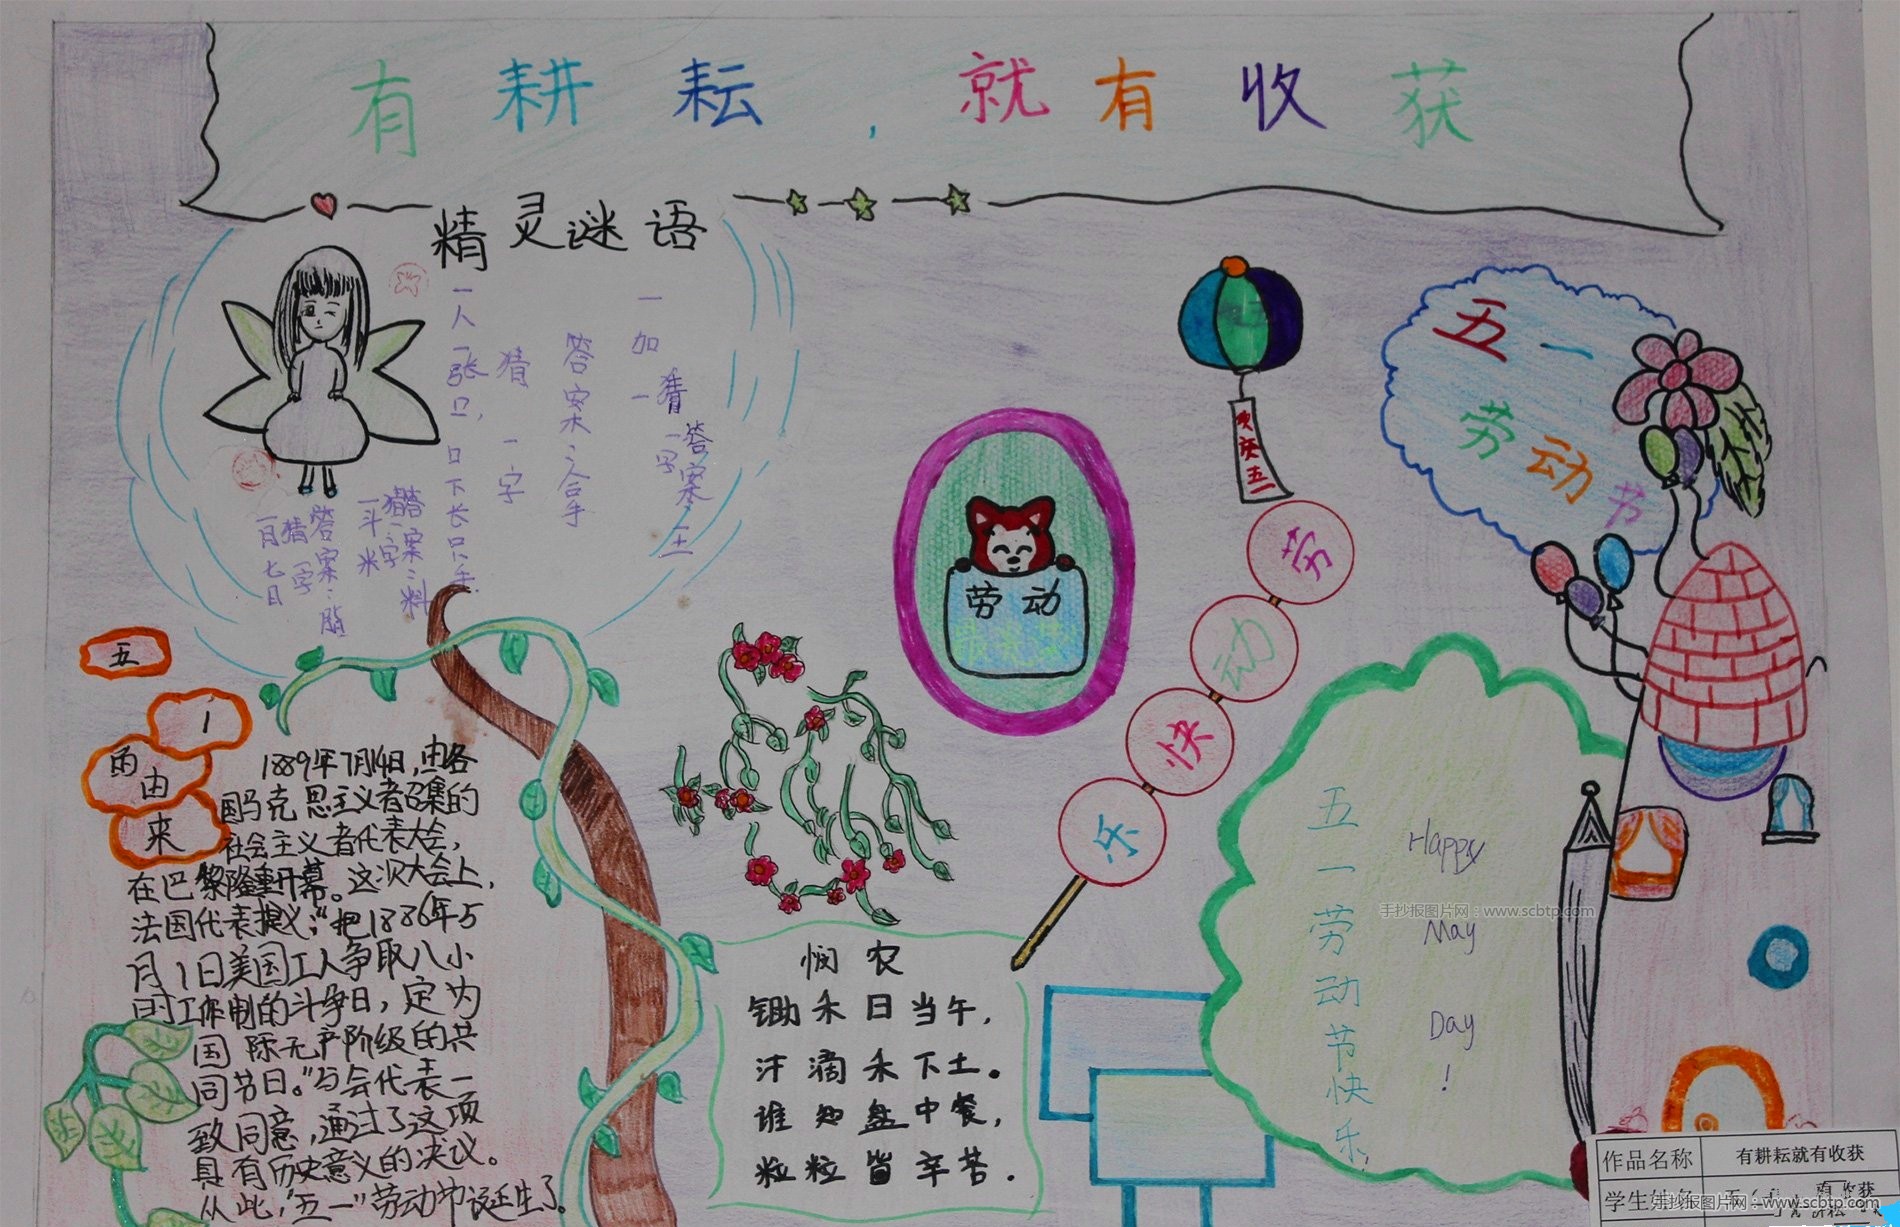 有耕耘，就有收获
精灵谜语
一人一张口，口下长只手
猜一字
答案：合手
一加一
猜一字
答案：王
一斗米
猜一字
答案：料
一月七日
猜一字
答案：脂
五
1
的由
来
1889年7月14日，由各
国马克思主义者召集的
社会主义者代表大会，
在巴黎隆重开幕。这次大会上，
法国代表提议："把1886年5
月1日美国工人争取八小
时工作制的斗争日，定为
国际无产阶级的共
同节日。"与会代表一
致同意，通过了这项
具有历史意义的决议。
从此，"五一"劳动节诞生了。
劳动
悯农
锄禾日当午，
汗滴禾下土。
谁知盘中餐，
粒粒皆辛苦.
劳动快乐
五一
劳动节
五一劳动节快乐！
Happy
May
Day
!
手抄报图片网：www.scbtp.com
作品名称 有耕耘就有收获
学生姓名
手抄报图片网：www.scbtp.com